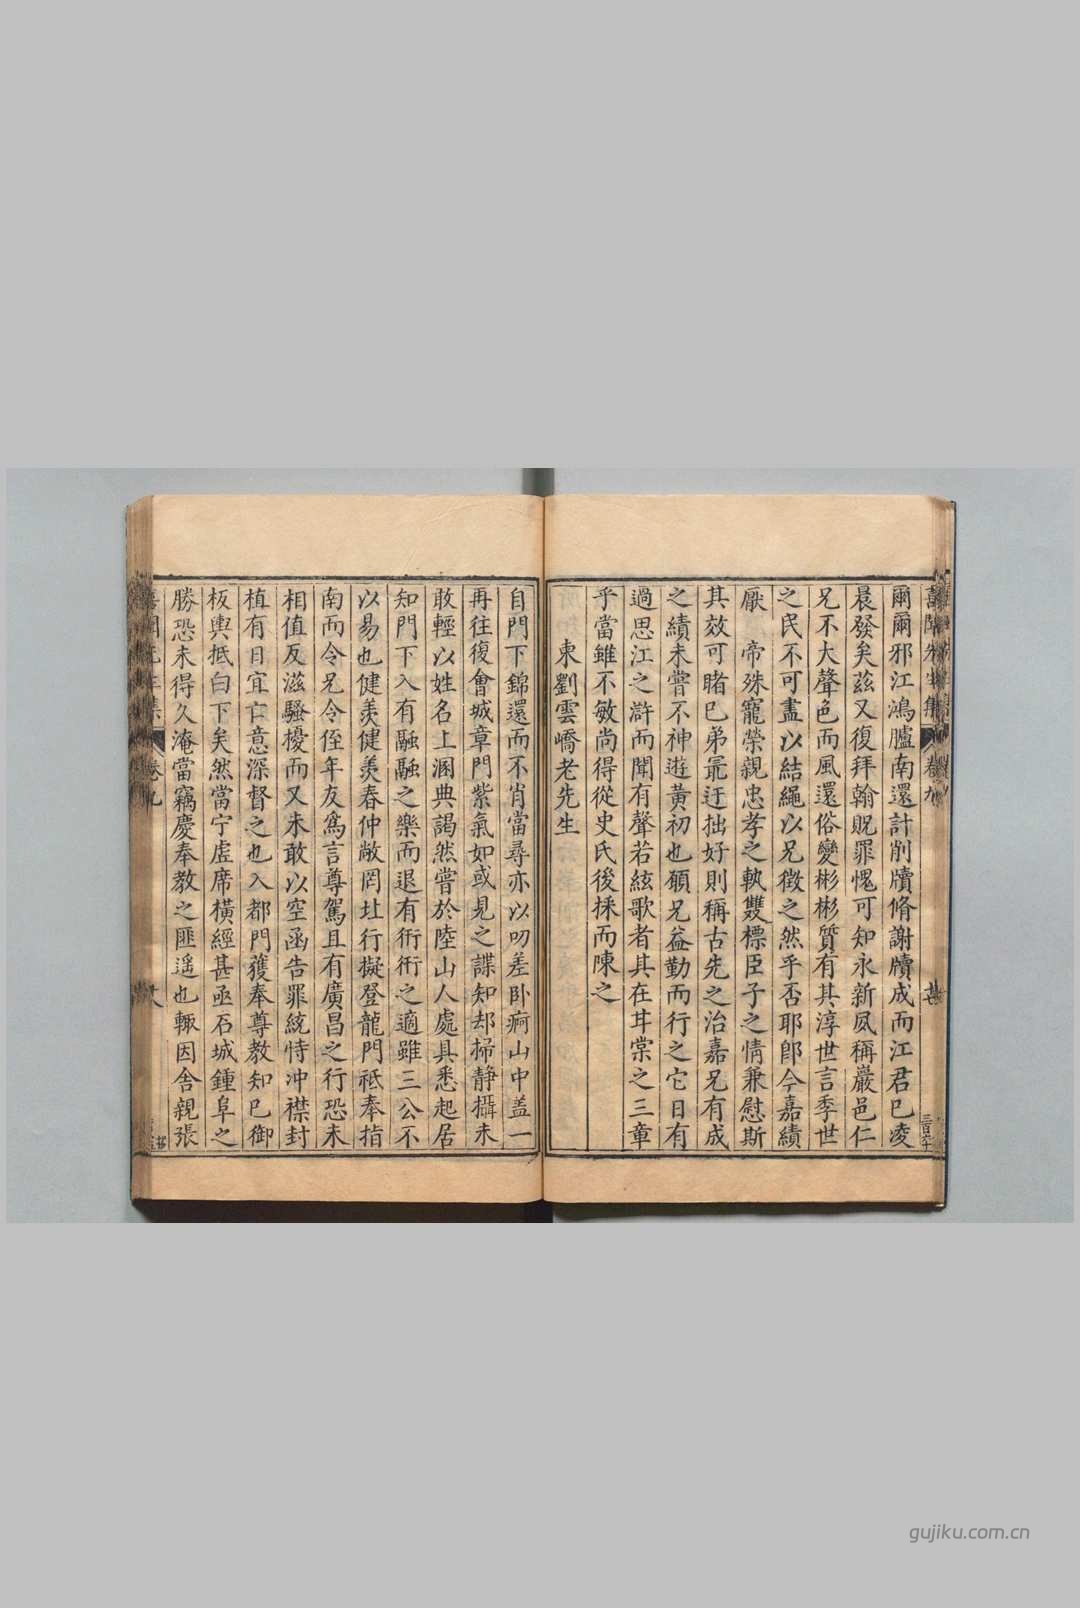 爾爾邪江鴻臚南還計削牘脩謝牘成而江君已凌
晨發矣茲又復拜翰貺罪愧可知永新夙稱巖邑仁
兄不大聲色而風還俗變彬彬質有其淳世言季世
之民不可盡以結繩以兄徵之然乎否耶卽今嘉績
厭　帝殊寵榮親忠孝之執雙標臣子之情兼慰斯
其效可睹已弟最迂拙好則稱古先之治嘉兄有成
之績未嘗不神遊黃初也願兄益勤而行之它日有
過思江之滸而聞有聲若絃歌者其在甘棠之三章
乎當雖不敏尚得從史氏後採而陳之
柬劉雲嶠老先生
自門下錦還而不肖當尋亦以叨差卧痾山中蓋一
再往復會城章門紫氣如或見之諜知却掃靜攝未
敢輕以姓名上溷典謁然嘗於陸山人處具悉起居
知門下入有融融之樂而退有衎衎之適雖三公不
以易也健羨健羨春仲敝罔址行擬登龍門祗奉指
南而令兄令侄年友為言尊駕且有廣昌之行恐未
相值反滋騷擾而又未敢以空函告罪統恃冲襟封
植有日宜亡意深督之也入都門獲奉尊教知已御
板輿抵白下矣然當宁虛席橫經甚亟石城鍾阜之
勝恐未得久淹當竊慶奉教之匪遥也輙因舍親張
集 卷九
gujiku.com.cn